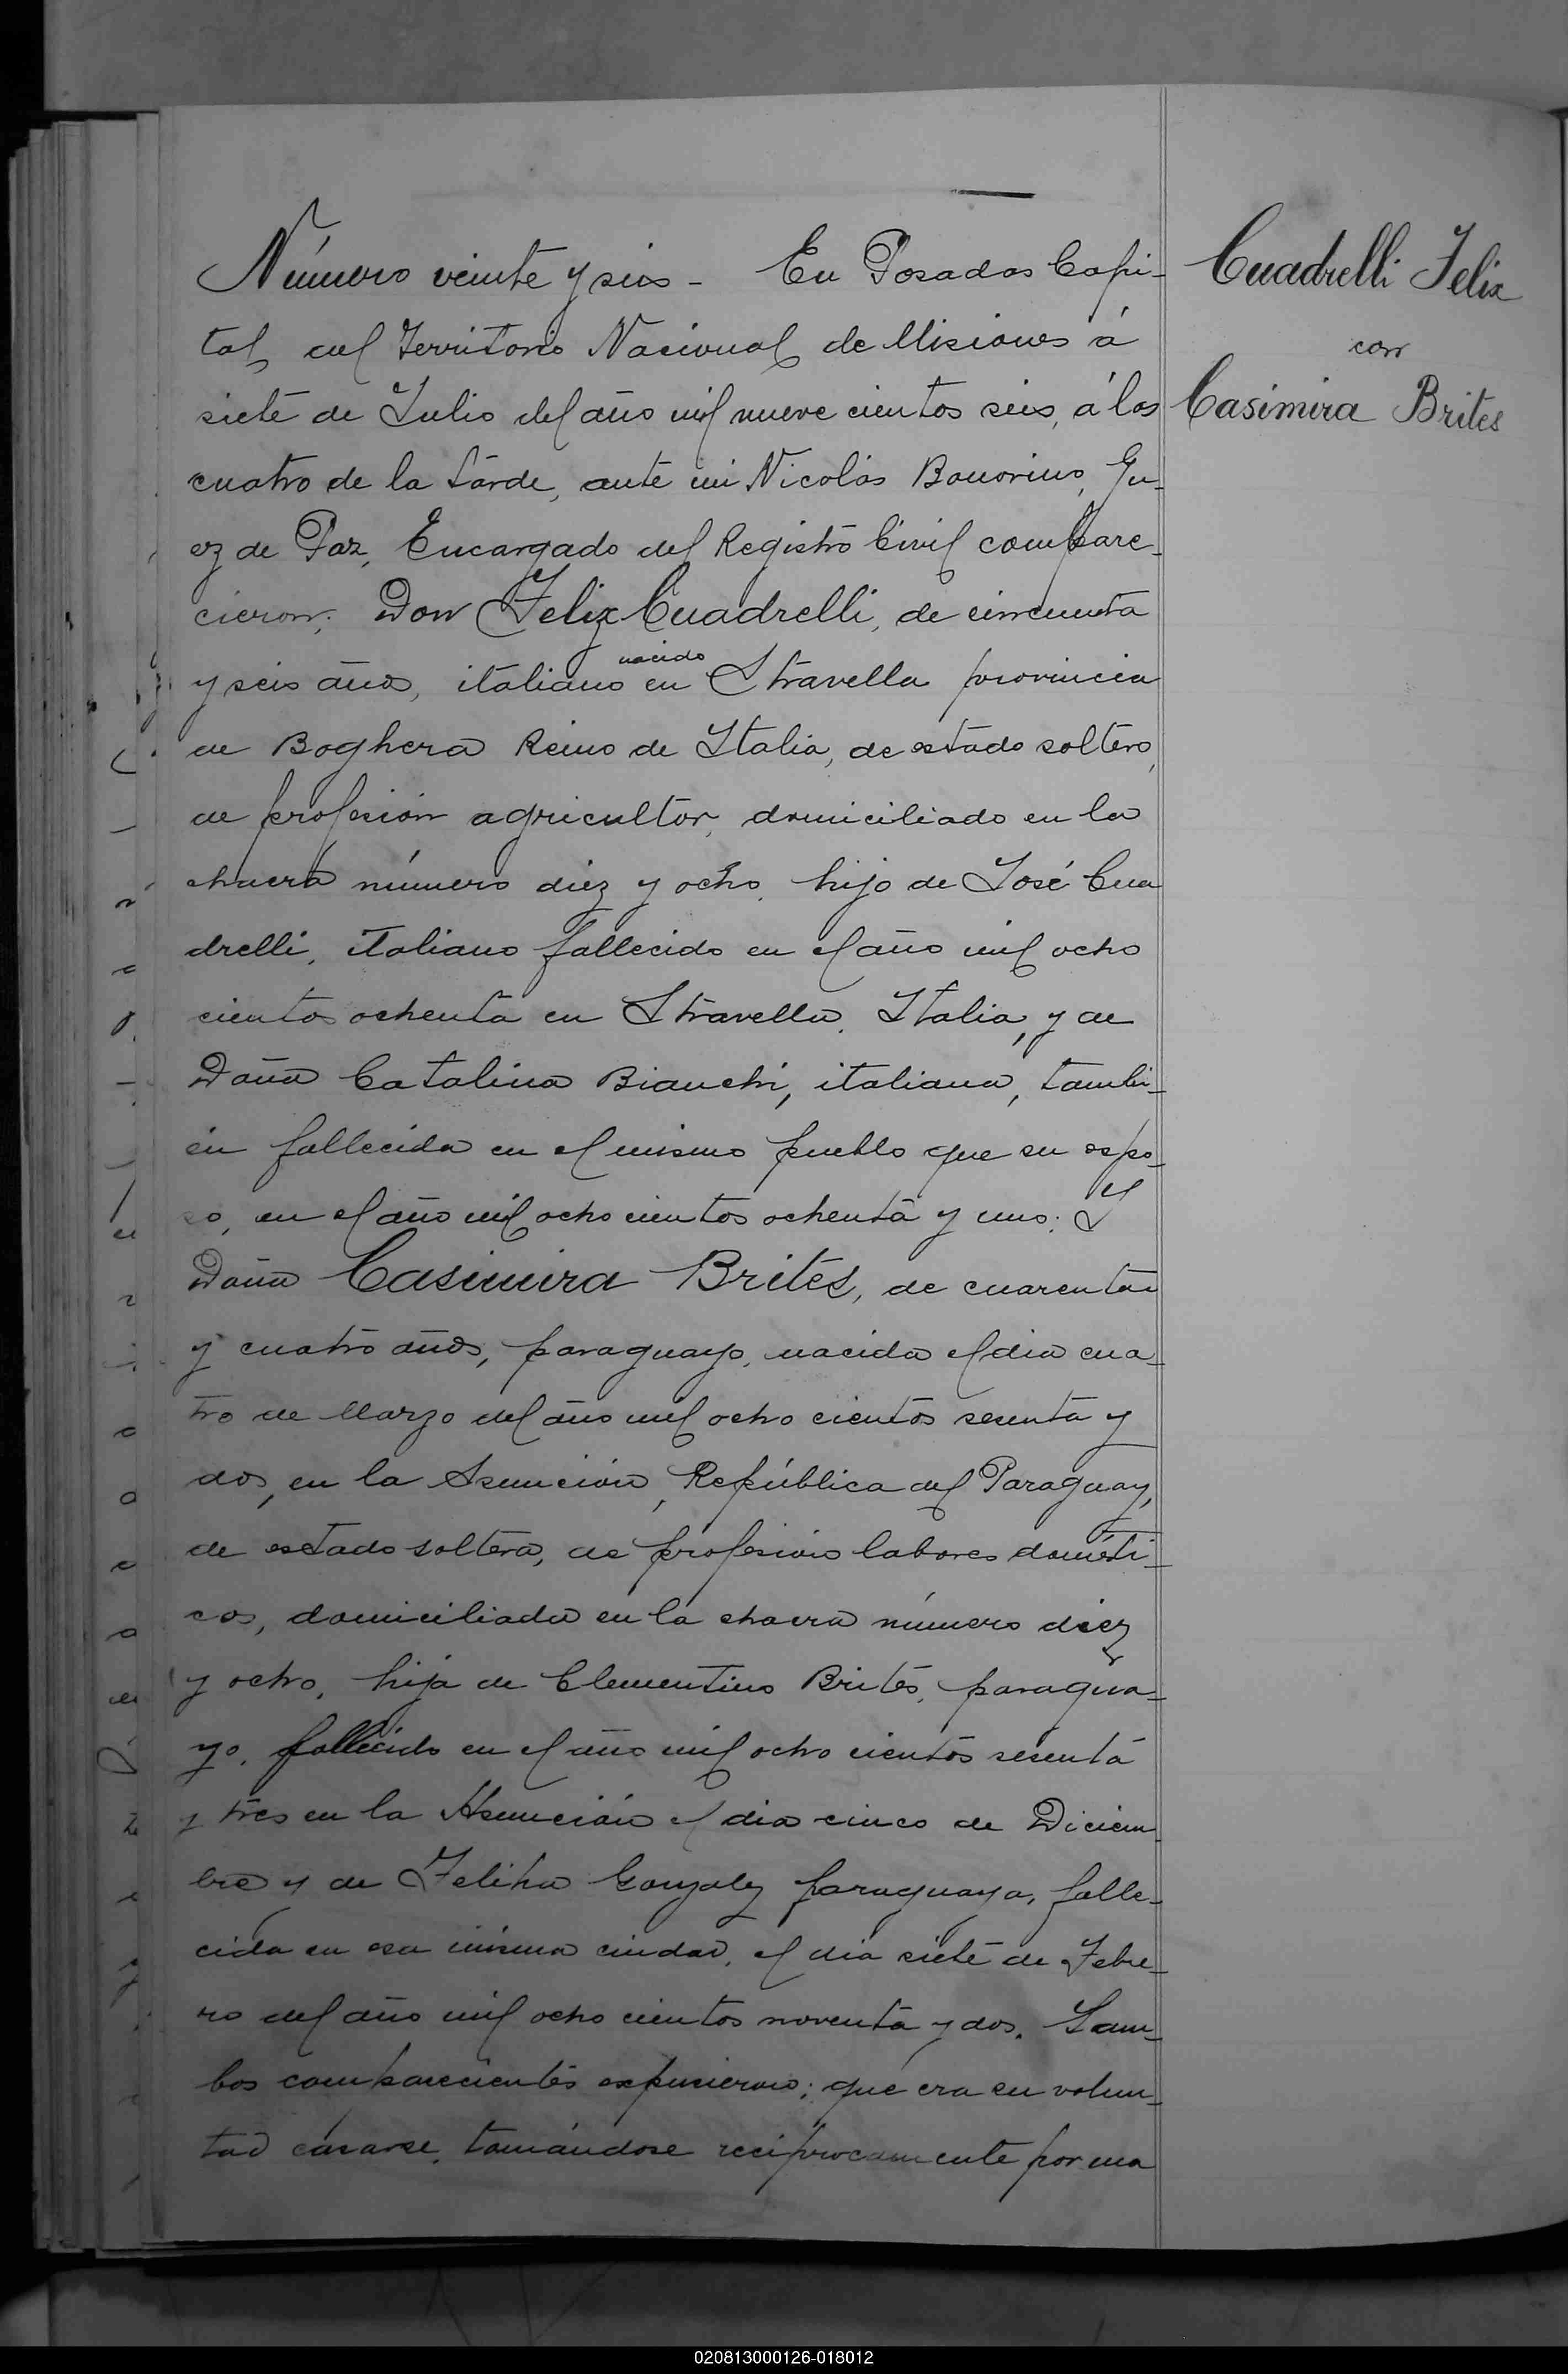 Número veinte y seis - En Posadas Capi-
tal del Territorio Nacional de Misiones á
siete de Julio del año mil nueve cientos seis, á las
cuatro de la tarde, ante mi Nicolás Bonorino, Ju-
ez de Paz, Encargado del Registro Civil compare-
cieron; Don Felix Cuadrelli, de cincuenta
nacido
y seis años, italiano en Stravella provincia
de Boghera Reino de Italia, de estado soltero,
de profesión agricultor, domiciliado en la
chacra número diez y ocho, hijo de José Cua
drelli, italiano fallecido en el año mil ocho
cientos ochenta en Stravella, Italia, y de
Doña Catalina Bianchi, italiana, tambi-
én fallecida en el mismo pueblo que su espo-
so, en el año mil ocho cientos ochenta y uno; Y
Doña Casimira Brites, de cuarenta
y cuatro años, paraguaya, nacida el dia cua-
tro de Marzo del año mil ocho cientos sesenta y
dos, en la Asunción, República del Paraguay,
de estado soltera, de profesión labores domésti-
cos, domiciliada en la chacra número diez
y ocho, hija de Clementino Brites, paragua-
yo, fallecido en el año mil ocho cientos sesenta
y tres en la Asunción el dia cinco de Diciem
bre y de Gonzalez paraguaya, falle-
cida en esa misma ciudad, el dia siete de Febre-
ro del año mil ocho cientos noventa y dos. Y am-
bos comparecientes expusieron; que era su volun-
tad casarse, tomándose recíprocamente por ma
Cuadrelli Felix
con
Casimira Brites
020813000126-018012